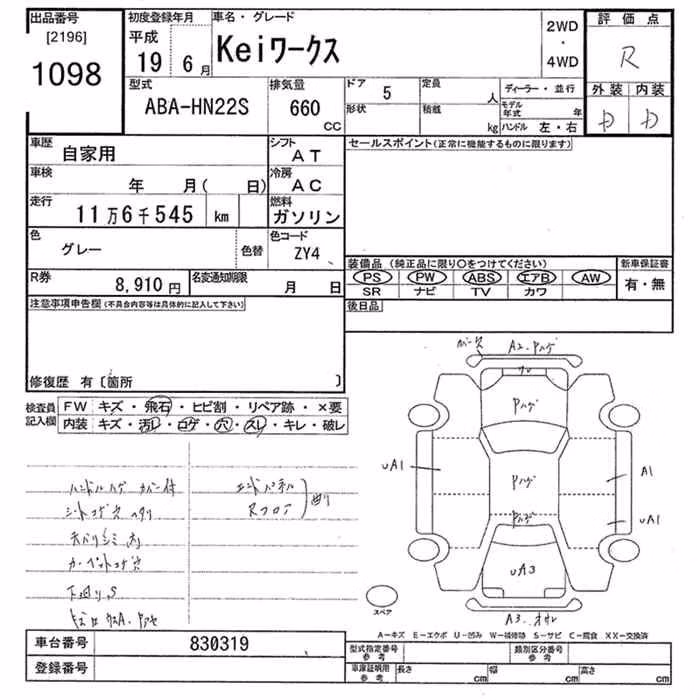 出品番号 初度登録年月 車名・グレード 2WD ・ 4WD 評価点
[2196] 平成
1098 19 6月 Keiワークス R
型式 排気量 ドア 5 定員 人 ディーラー・並行 外装 内装
ABA-HN22S 660 CC 形状 積載 kg モデル年式 年 D D
ハンドル 左・右
車歴 自家用 シフト AT セールスポイント(正常に機能するものに限ります)
車検 年 月( 日) 冷房 AC
走行 11万6千545 km 燃料 ガソリン
色 グレー 色替 色コード ZY4
装備品(純正品に限り○をつけてください) 新車保証書
R券 8,910円 名変通知期限 月 日 PS PW ABS エアB AW 有・無
SR ナビ TV カワ
注意事項申告欄(不具合内容等は具体的に記入して下さい) 後日品
修復歴 有〔箇所 〕
検査員記入欄 FW キズ・飛石・ヒビ割・リペア跡・×要
内装 キズ・汚レ・コゲ・穴・スレ・キレ・破レ
ハンドルハゲ カバー付
シートコゲ穴 ヘタリ
天バリシミ
カーペットコゲ穴
下廻りS
エンドパネル
Rフロア
曲り
A2.Pハゲ
Pハゲ
UA1 Pハゲ A1
Pハゲ UA1
UA3
スペア A3.
A-キズ E-エクボ U-凹み W-補修跡 S-サビ C-腐食 XX-交換済
車台番号 830319 型式指定番号 参考 類別区分番号 参考
登録番号 車庫証明用 参考 長さ cm 幅 cm 高さ cm